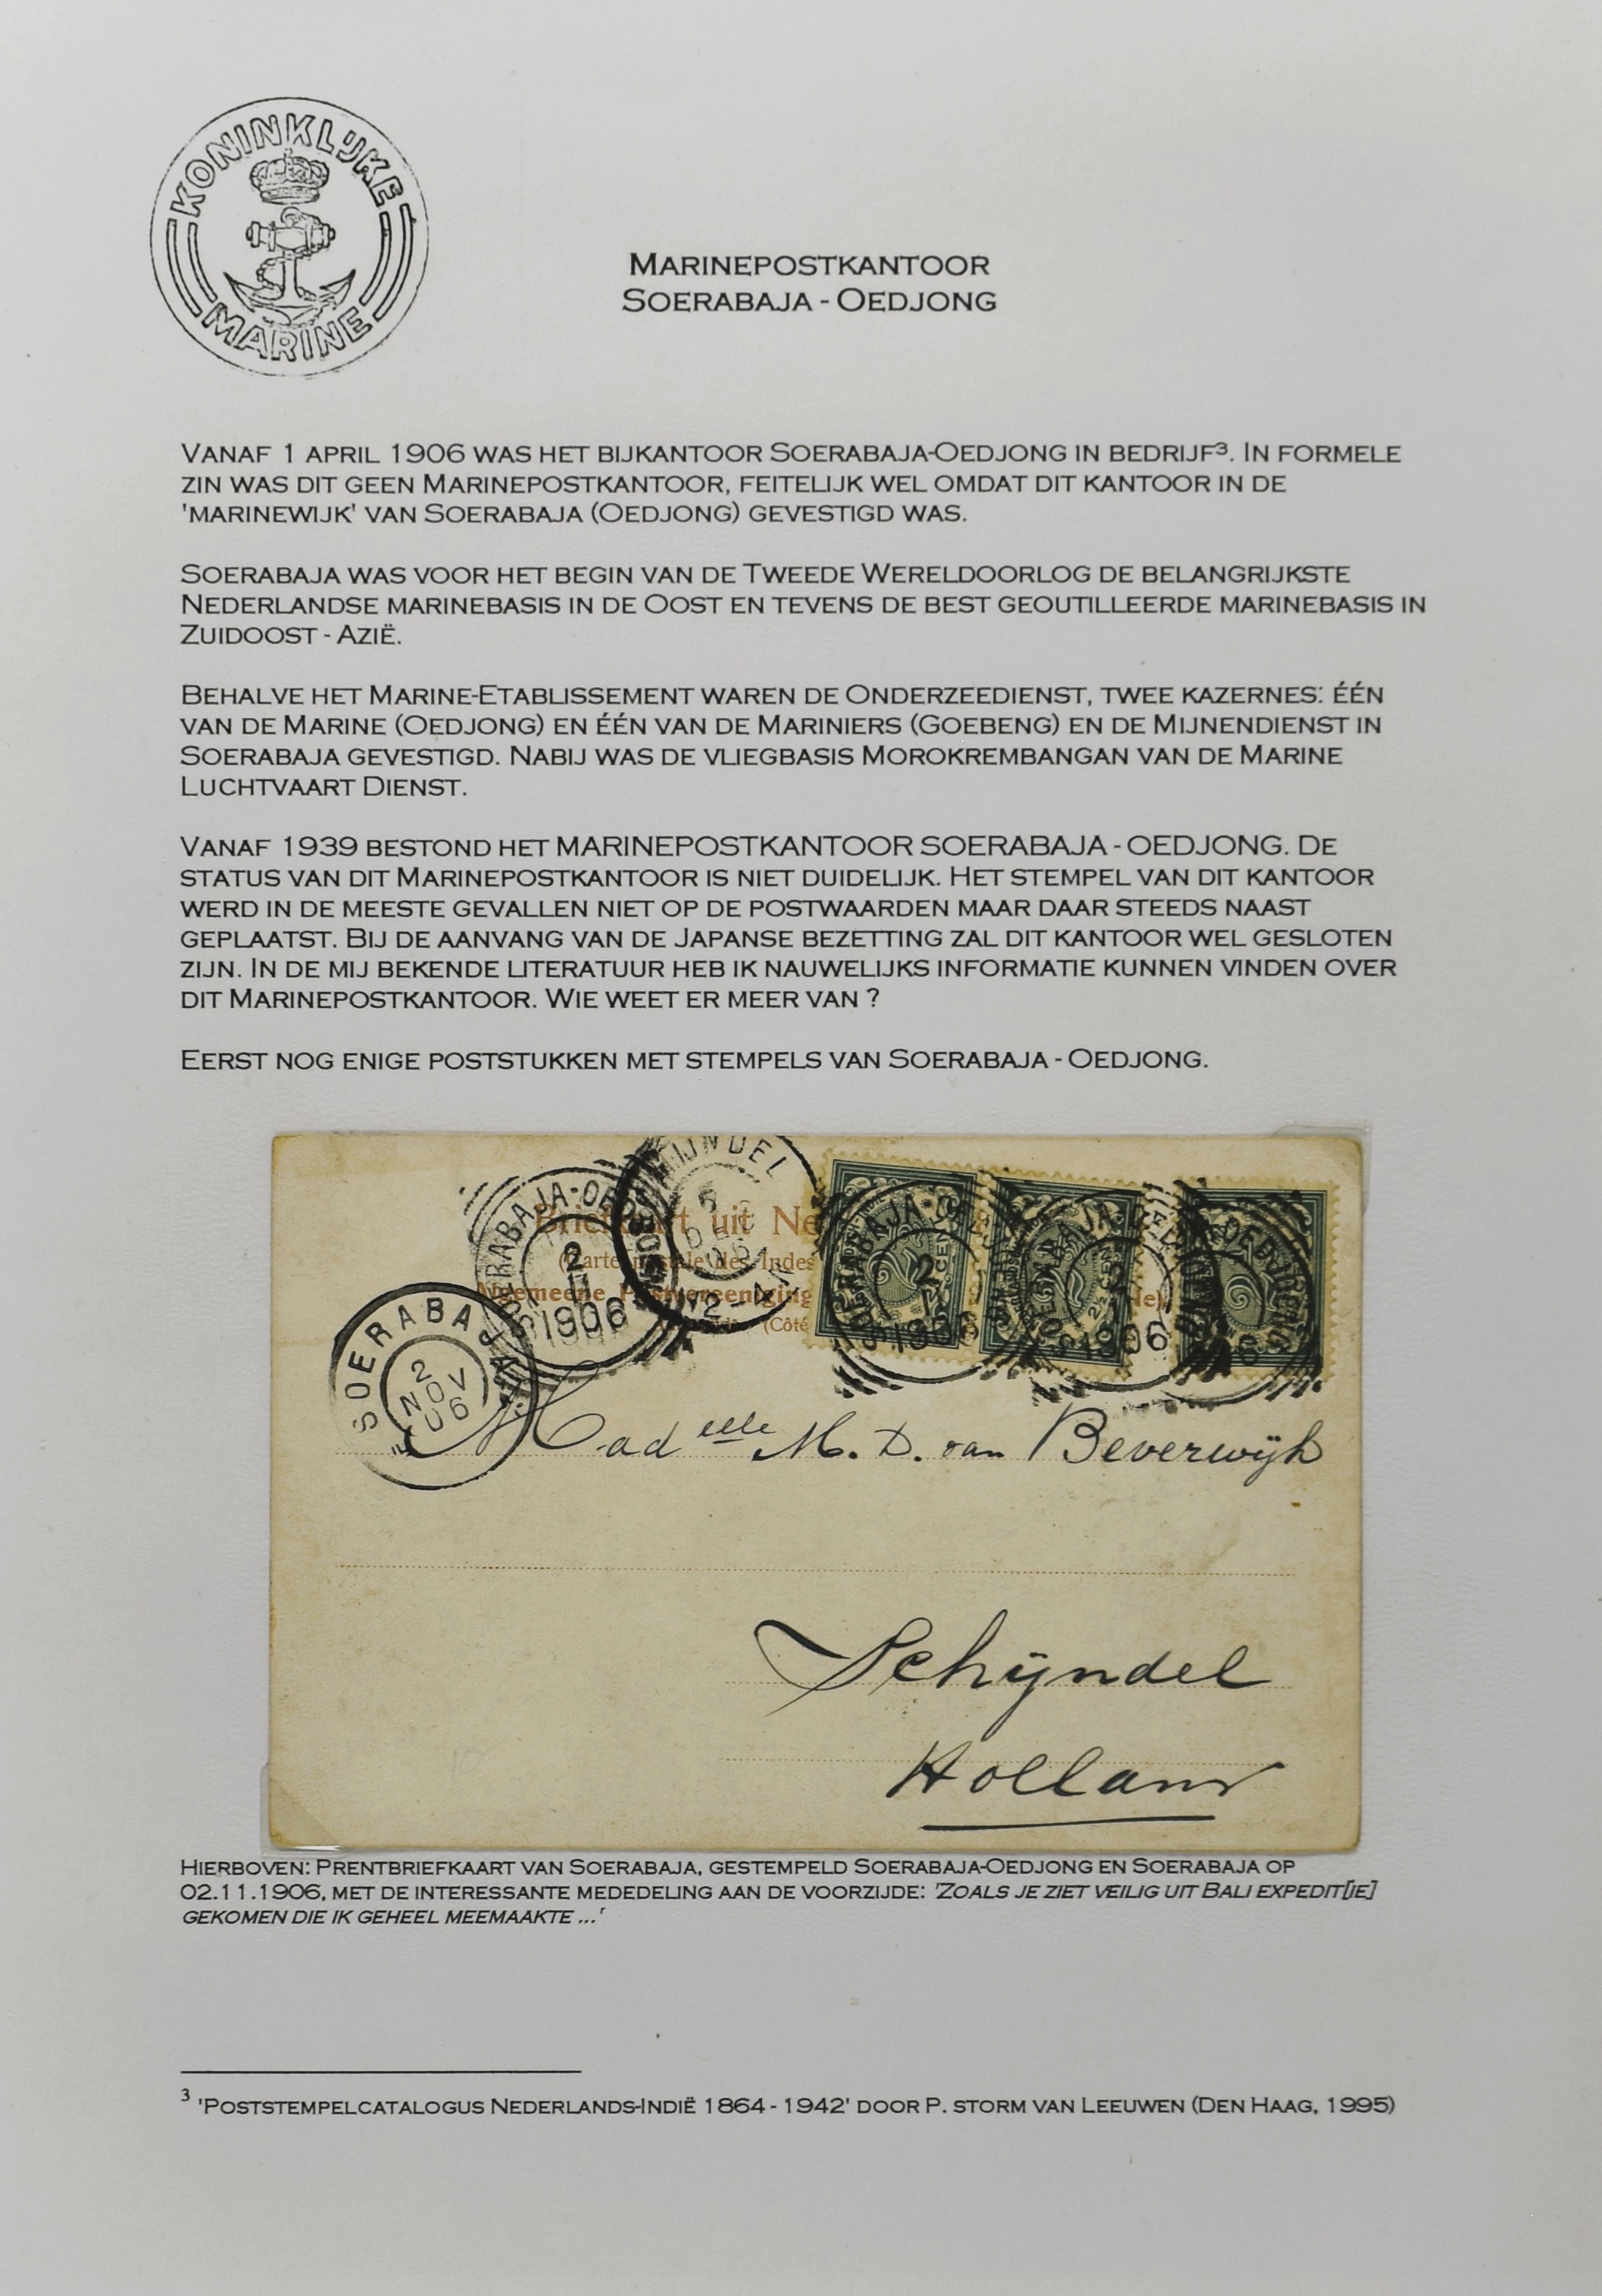 KONINKLIJKE
MARINE
MARINEPOSTKANTOOR
SOERABAJA - OEDJONG
VANAF 1 APRIL 1906 WAS HET BIJKANTOOR SOERABAJA-OEDJONG IN BEDRIJF³. IN FORMELE
ZIN WAS DIT GEEN MARINEPOSTKANTOOR, FEITELIJK WEL OMDAT DIT KANTOOR IN DE
'MARINEWIJK' VAN SOERABAJA (OEDJONG) GEVESTIGD WAS.
SOERABAJA WAS VOOR HET BEGIN VAN DE TWEEDE WERELDOORLOG DE BELANGRIJKSTE
NEDERLANDSE MARINEBASIS IN DE OOST EN TEVENS DE BEST GEOUTILLEERDE MARINEBASIS IN
ZUIDOOST - AZIË.
BEHALVE HET MARINE-ETABLISSEMENT WAREN DE ONDERZEEDIENST, TWEE KAZERNES: ÉÉN
VAN DE MARINE (OEDJONG) EN ÉÉN VAN DE MARINIERS (GOEBENG) EN DE MIJNENDIENST IN
SOERABAJA GEVESTIGD. NABIJ WAS DE VLIEGBASIS MOROKREMBANGAN VAN DE MARINE
LUCHTVAART DIENST.
VANAF 1939 BESTOND HET MARINEPOSTKANTOOR SOERABAJA - OEDJONG. DE
STATUS VAN DIT MARINEPOSTKANTOOR IS NIET DUIDELIJK. HET STEMPEL VAN DIT KANTOOR
WERD IN DE MEESTE GEVALLEN NIET OP DE POSTWAARDEN MAAR DAAR STEEDS NAAST
GEPLAATST. BIJ DE AANVANG VAN DE JAPANSE BEZETTING ZAL DIT KANTOOR WEL GESLOTEN
ZIJN. IN DE MIJ BEKENDE LITERATUUR HEB IK NAUWELIJKS INFORMATIE KUNNEN VINDEN OVER
DIT MARINEPOSTKANTOOR. WIE WEET ER MEER VAN ?
EERST NOG ENIGE POSTSTUKKEN MET STEMPELS VAN SOERABAJA - OEDJONG.
Briefkaart uit
(Carte postale des Indes
Algemeene Postvereeniging
(Côté
2
11
1906
SOERABAJA
2
NOV
06
Madelle M. D. van Beverwijk
Schijndel
Holland
HIERBOVEN: PRENTBRIEFKAART VAN SOERABAJA, GESTEMPELD SOERABAJA-OEDJONG EN SOERABAJA OP
02.11.1906, MET DE INTERESSANTE MEDEDELING AAN DE VOORZIJDE: 'ZOALS JE ZIET VEILIG UIT BALI EXPEDIT[IE]
GEKOMEN DIE IK GEHEEL MEEMAAKTE ...'
³ 'POSTSTEMPELCATALOGUS NEDERLANDS-INDIË 1864 - 1942' DOOR P. STORM VAN LEEUWEN (DEN HAAG, 1995)